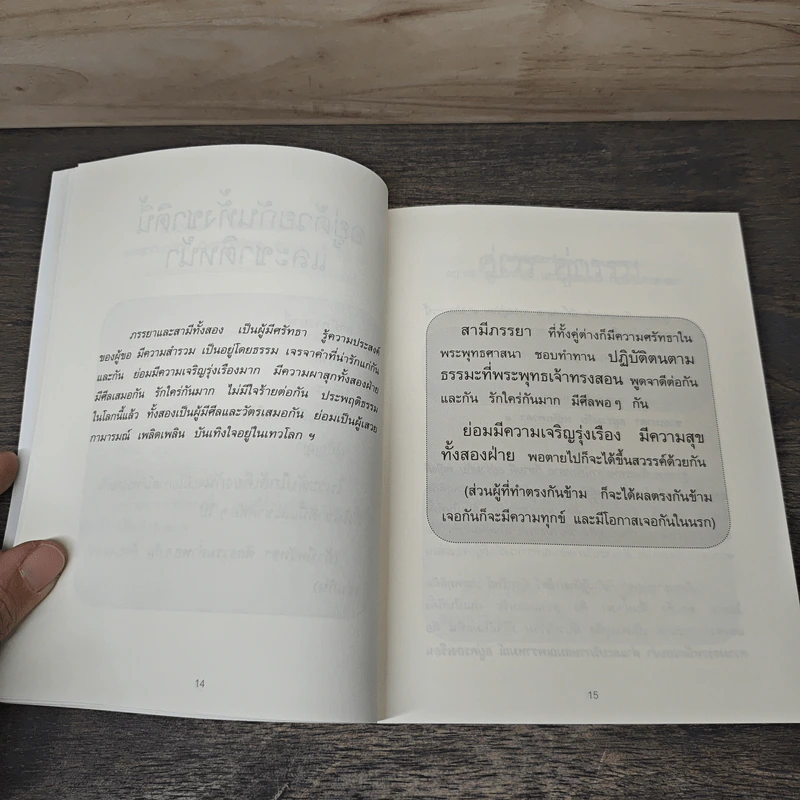 ภรรยาและสามีทั้งสอง เป็นผู้มีศรัทธา รู้ความประสงค์
ของผู้ขอ มีความสำรวม เป็นอยู่โดยธรรม เจรจาคำที่น่ารักแก่กัน
และกัน ย่อมมีความเจริญรุ่งเรืองมาก มีความผาสุกทั้งสองฝ่าย
มีศีลเสมอกัน รักใคร่กันมาก ไม่มีใจร้ายต่อกัน ประพฤติธรรม
ในโลกนี้แล้ว ทั้งสองเป็นผู้มีศีลและวัตรเสมอกัน ย่อมเป็นผู้เสวย
กามารมณ์ เพลิดเพลิน บันเทิงใจอยู่ในเทวโลก ฯ
14
สามีภรรยา ที่ทั้งคู่ต่างก็มีความศรัทธาใน
พระพุทธศาสนา ชอบทำทาน ปฏิบัติตนตาม
ธรรมะที่พระพุทธเจ้าทรงสอน พูดจาดีต่อกัน
และกัน รักใคร่กันมาก มีศีลพอๆ กัน
ย่อมมีความเจริญรุ่งเรือง มีความสุข
ทั้งสองฝ่าย พอตายไปก็จะได้ขึ้นสวรรค์ด้วยกัน
(ส่วนผู้ที่ทำตรงกันข้าม ก็จะได้ผลตรงกันข้าม
เจอกันก็จะมีความทุกข์ และมีโอกาสเจอกันในนรก)
15